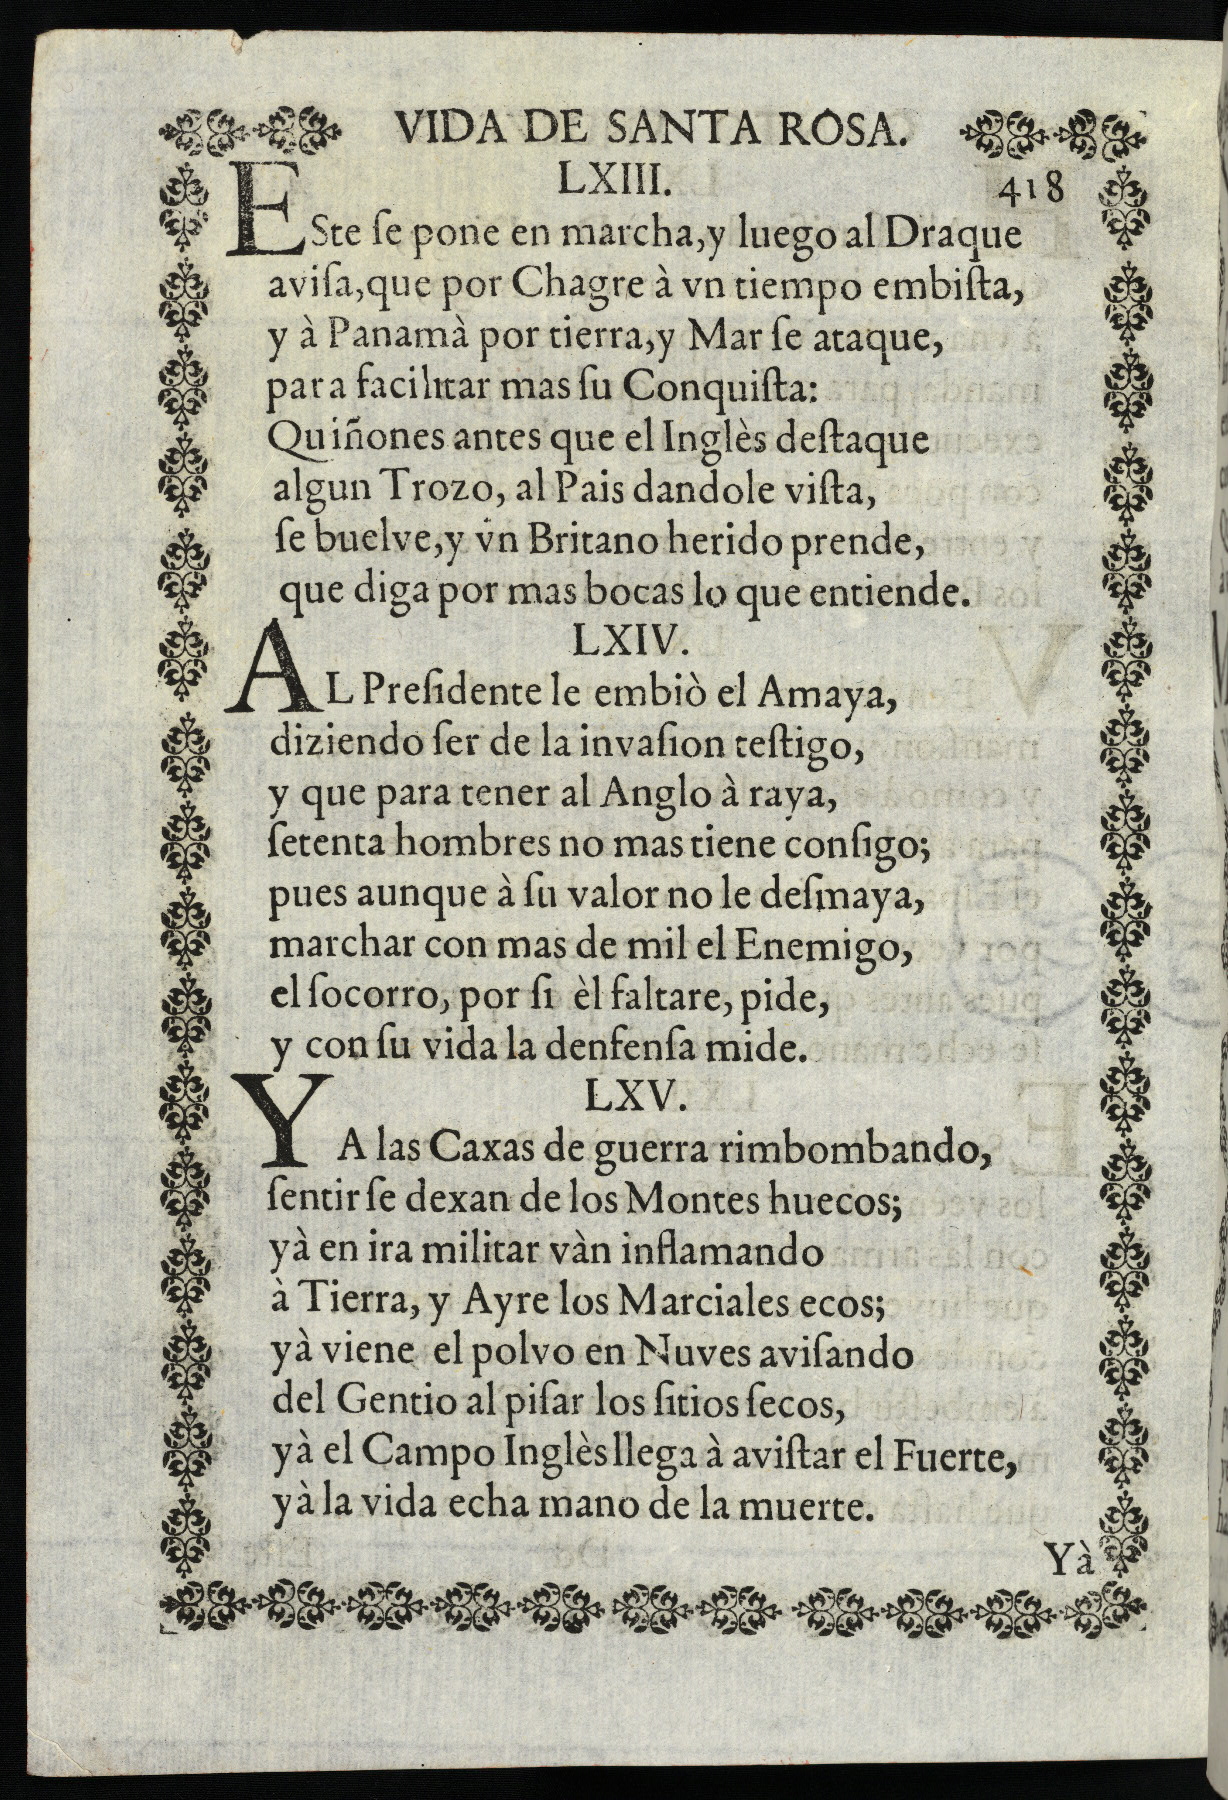 VIDA DE SANTA ROSA.
LXIII.
418
ESte ſe pone en marcha,y luego al Draque
aviſa,que por Chagre à vn tiempo embiſta,
y à Panamà por tierra,y Mar ſe ataque,
para facilitar mas ſu Conquiſta:
Quiñones antes que el Inglès deſtaque
algun Trozo, al Pais dandole viſta,
ſe buelve,y vn Britano herido prende,
que diga por mas bocas lo que entiende.
LXIV.
AL Preſidente le embiò el Amaya,
diziendo ſer de la invaſion teſtigo,
y que para tener al Anglo à raya,
ſetenta hombres no mas tiene conſigo;
pues aunque à ſu valor no le deſmaya,
marchar con mas de mil el Enemigo,
el ſocorro, por ſi èl faltare, pide,
y con ſu vida la denfenſa mide.
LXV.
YA las Caxas de guerra rimbombando,
ſentirſe dexan de los Montes huecos;
yà en ira militar vàn inflamando
à Tierra, y Ayre los Marciales ecos;
yà viene el polvo en Nuves aviſando
del Gentio al piſar los ſitios ſecos,
yà el Campo Inglès llega à aviſtar el Fuerte,
yà la vida echa mano de la muerte.
Yà